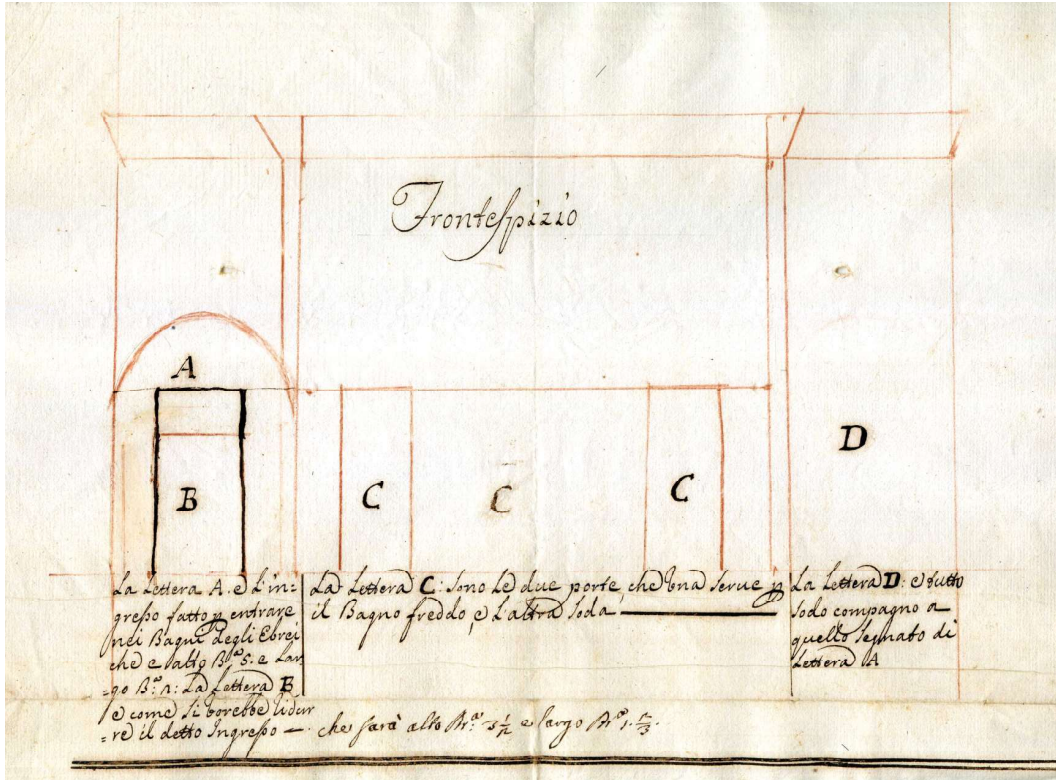 Frontespizio
A
B
C
C
C
D
La Lettera A. e L'in=
gresso fatto p entrare
nei Bagni degli Ebrei
che e alto Br.ª 5: e Lar
=go Br.ª 2: La Lettera B
e come si vorebbe ridur
=re il detto Ingresso — che sarà alto Br.ª e largo Br.ª
La Lettera C: sono Le due porte, che una serve p
il Bagno freddo, e L'altra soda
La Lettera D: e tutto
sodo compagno a
quello segnato di
Lettera A